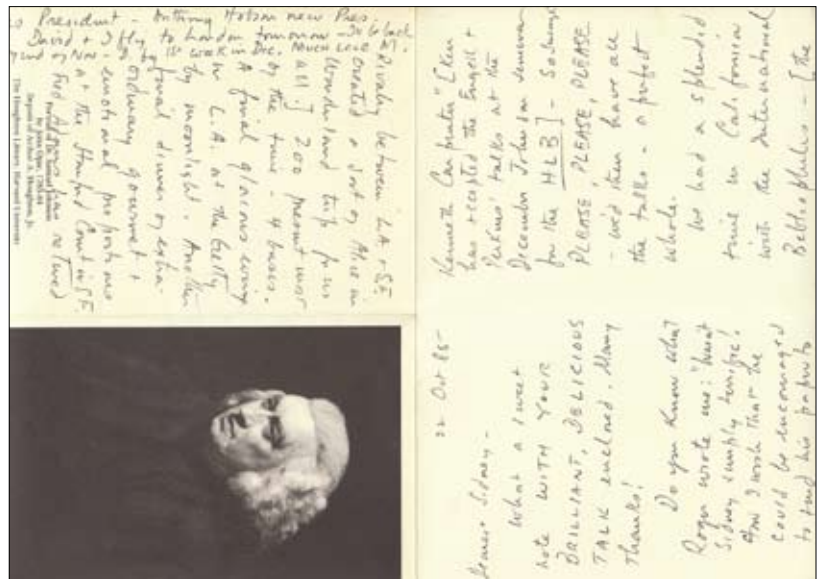 22 Oct 85-
Dearest Sidney -
What a sweet
note WITH YOUR
BRILLIANT, DELICIOUS
TALK enclosed. Many
Thanks!
Do you know what
Roger wrote me: "Wasn't
Sidney simply terrific!
How I wish that he
could be encouraged
to send his paper to
Kenneth Carpenter" [Ken
has accepted the Engell &
Perkins' talks at the
December Johnson seminar
for the HLB] - So change
PLEASE, PLEASE, PLEASE
- we'd then have all
the talks - a perfect
whole.
We had a splendid
time in California
with the International
Bibliophiles - [the
Rivalry between LA & SF
created a sort of Alice in
Wonderland trip for us
all.] 200 present most
of the time - 4 buses.
A final glorious evening
in L.A. at the Getty
by moonlight. Another
final dinner of extra-
ordinary gourmet &
emotional proportions
at the Stanford Court in S.F.
Fred Adams has retired
as President - Anthony Hobson new Pres.
David & I fly to London tomorrow - To be back
by end of Nov - or by 1st week in Dec. Much Love M.
Portrait of Dr. Samuel Johnson
by John Opie, 1783-84
Deposit of Arthur A. Houghton, Jr.
The Houghton Library, Harvard University